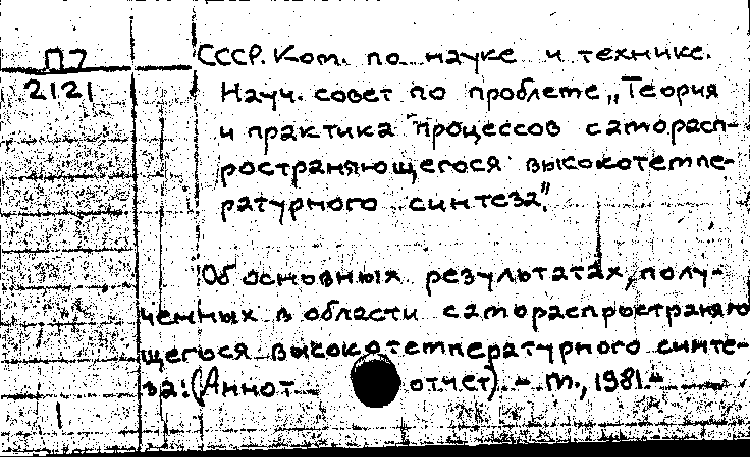 П7
2121
СССР. Ком. по науке и технике.
Науч. совет по проблеме „Теория
и практика процессов саморасп-
ространяющегося высокотемпе-
ратурного синтеза".
Об основных результатах, полу-
ченных в области самораспространяю
щегося высокотемпературного синте-
за: (Аннот. отчет). - М., 1981. -